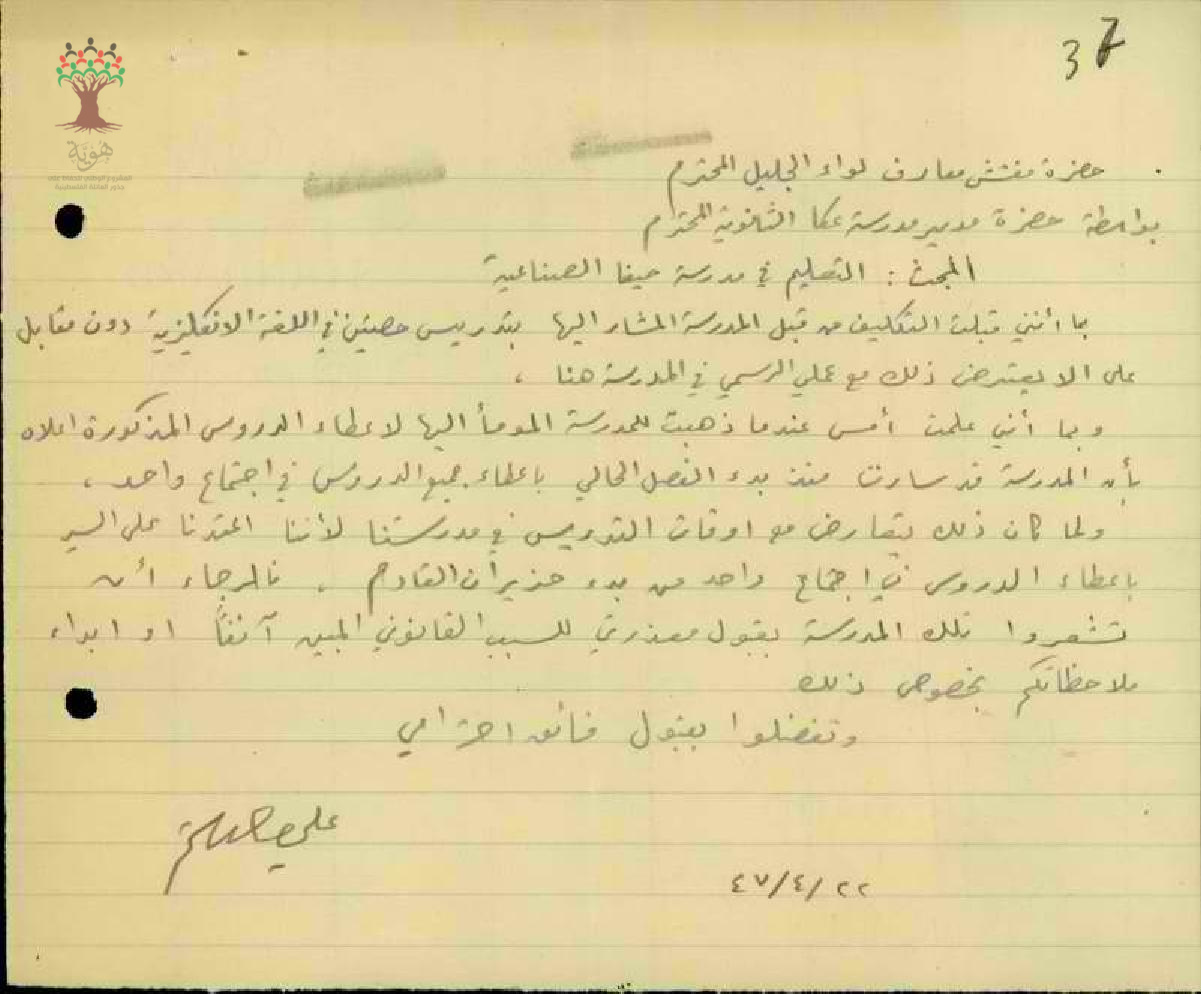 37
هوية
حضرة مفتش معارف لواء الجليل المحترم
بواسطة حضرة مدير مدرسة عكا الثانوية المحترم
المبحث : التعليم في مدرسة حيفا الصناعية
بما أنني قبلت التكليف من قبل المدرسة المشار اليها بتدريس حصتين في اللغة الانكليزية دون مقابل
على الا يعترض ذلك مع عملي الرسمي في المدرسة هنا ،
وبما أنني علمت أمس عندما ذهبت للمدرسة المومأ اليها لاعطاء الدروس المذكورة اعلاه
بأن المدرسة قد سارت منذ بدء الفصل الحالي باعطاء جميع الدروس في اجتماع واحد ،
ولما كان ذلك يتعارض مع اوقات التدريس في مدرستنا لأننا اعتدنا على السير
باعطاء الدروس في اجتماع واحد من بدء حزيران القادم . فالرجاء أن
تشعروا تلك المدرسة بقبول معذرتي للسبب القانوني المبين آنفاً او ابداء
ملاحظاتكم بخصوص ذلك
وتفضلوا بقبول فائق احترامي
علي
٤٧/٤/٢٢